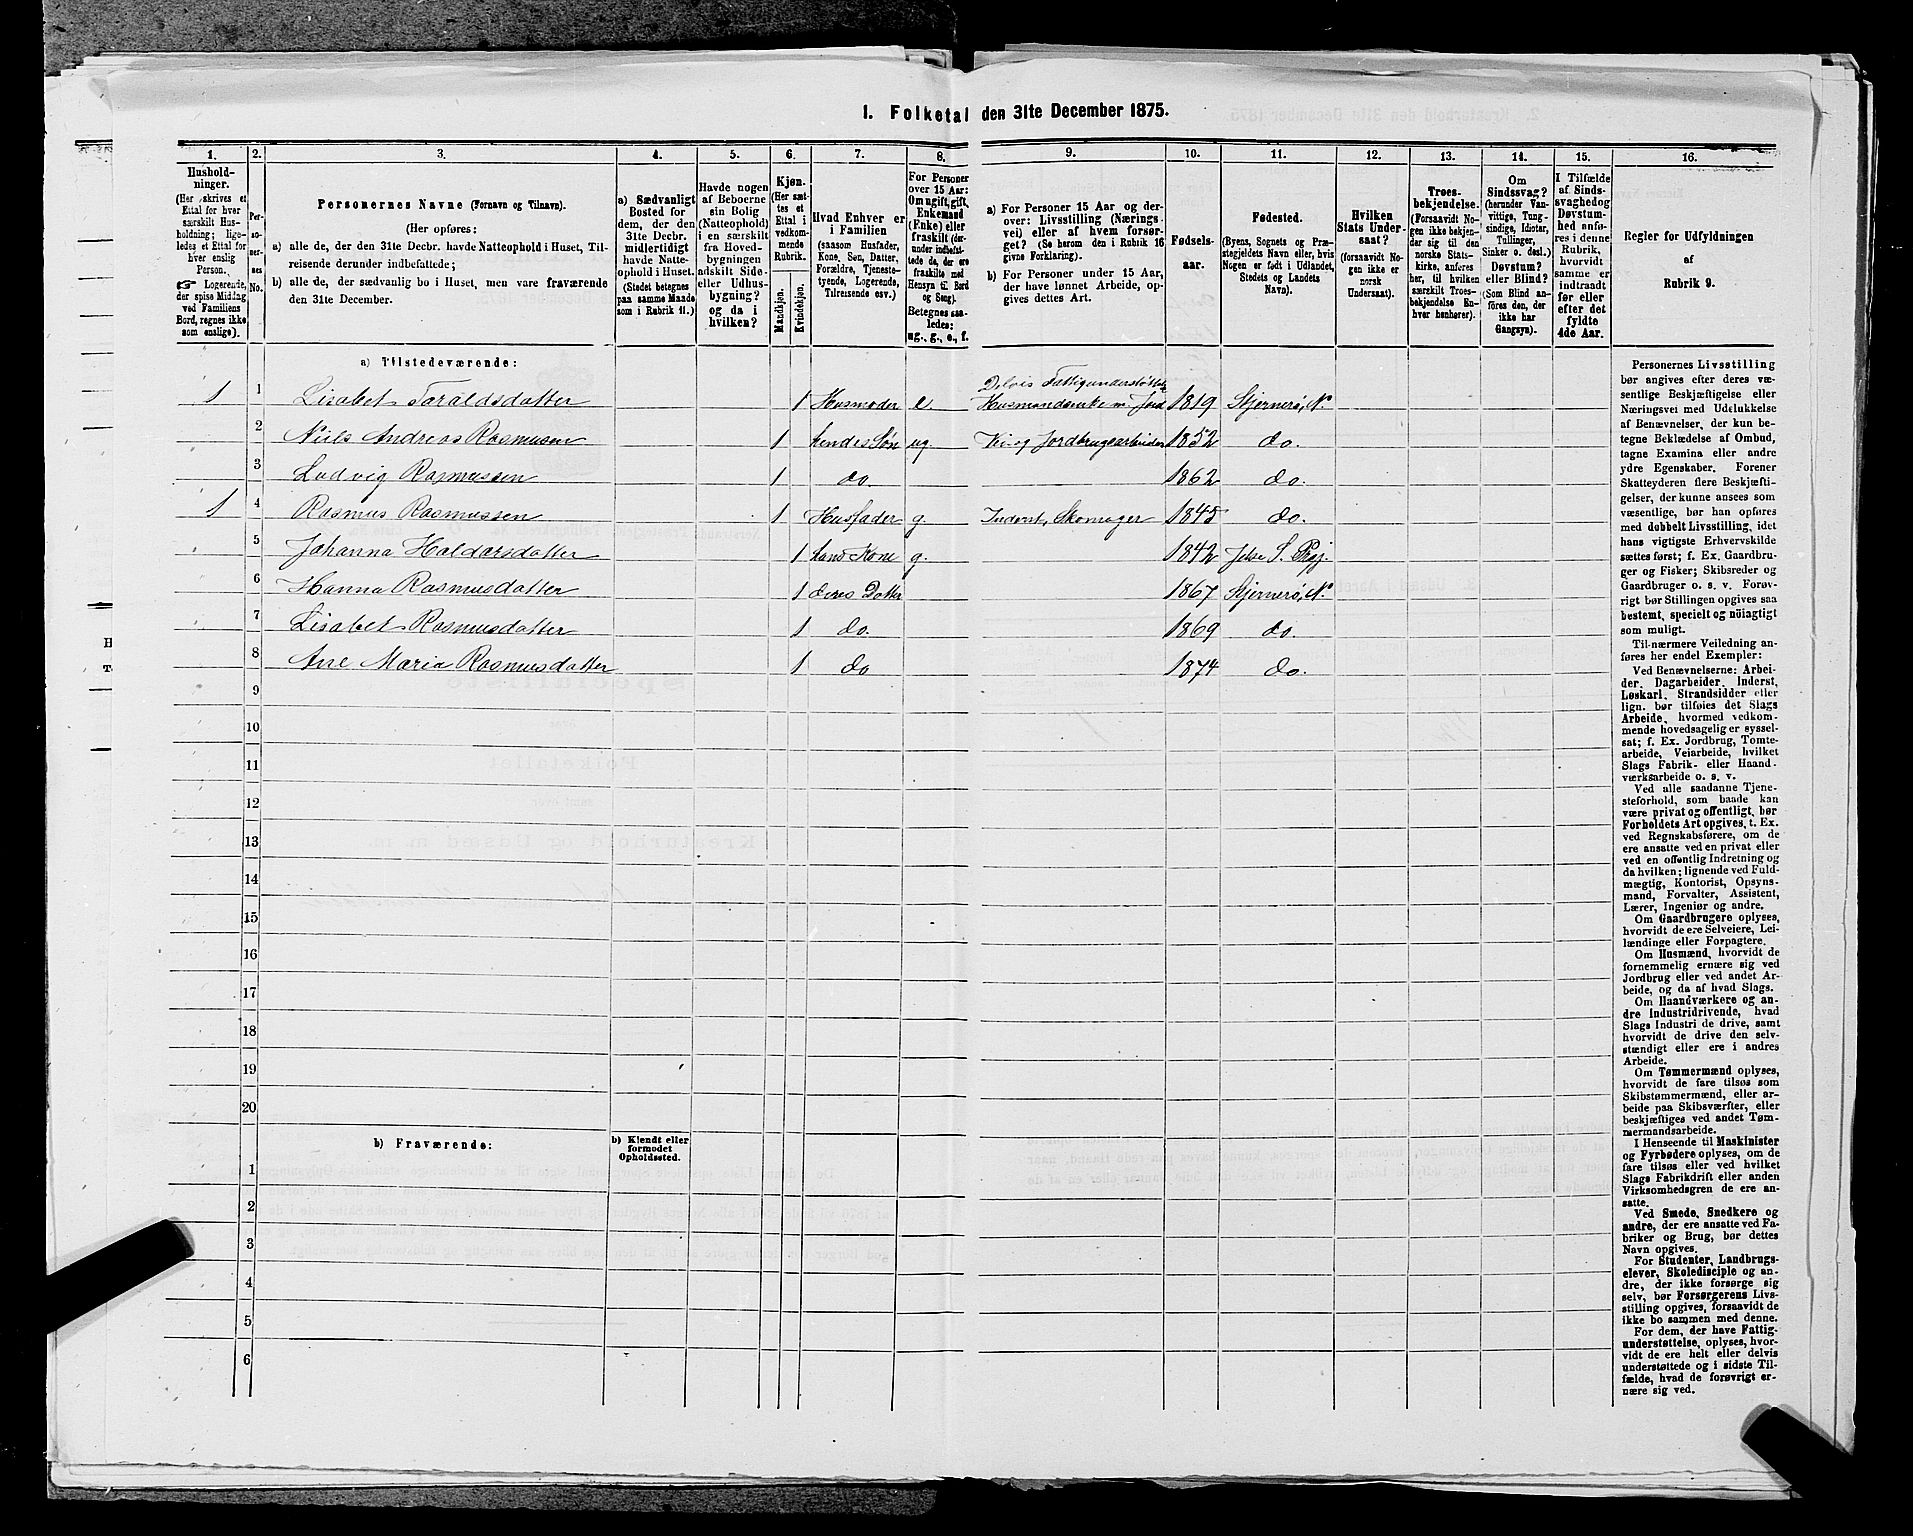 1. Folketal den 31te December 1875.
1. 2. 3. 4. 5. 6. 7. 8. 9. 10. 11. 12. 13. 14. 15. 16.
Hushold-
ninger.
(Her skrives et
Ettal for hver
særskilt Hus-
holdning; lige-
ledes et Ettal for
hver enslig
Person.
☞ Logerende,
der spise Middag
ved Familiens
Bord, regnes ikke
som enslige).
Per-
soner-
nes
No.
Personernes Navne (Fornavn og Tilnavn).
(Her opføres:
a) alle de, der den 31te Decbr. havde Natteophold i Huset, Til-
reisende derunder indbefattede;
b) alle de, der sædvanlig bo i Huset, men vare fraværende
den 31te December.
a) Sædvanligt
Bosted for
dem, der den
31te Decbr.
midlertidigt
havde Natte-
ophold i Huset.
(Stedet betegnes
paa samme Maade
som i Rubrik 11.)
Havde nogen
af Beboerne
sin Bolig
(Natteophold)
i en særskilt
fra Hoved-
bygningen
adskilt Side-
eller Udhus-
bygning?
og da i
hvilken?
Kjøn.
(Her sæt-
tes et
Ettal i
vedkom-
mende
Rubrik.
Mandkjøn.
Kvindekjøn.
Hvad Enhver er
i Familien
(saasom Husfader,
Kone, Søn, Datter,
Forældre, Tjeneste-
tyende, Logerende,
Tilreisende osv.)
For Personer
over 15 Aar:
Om ugift, gift,
Enkemand
(Enke) eller
fraskilt (der-
under indbefat-
tede de, der ere
fraskilte med
Hensyn til Bord
og Seng).
Betegnes saa-
ledes:
ug., g., e., f.
a) For Personer 15 Aar og der-
over: Livsstilling (Nærings-
vei) eller af hvem forsør-
get? (Se herom den i Rubrik 16
givne Forklaring).
b) For Personer under 15 Aar,
der have lønnet Arbeide, op-
gives dettes Art.
Fødsels-
aar.
Fødested.
(Byens, Sognets og Præ-
stegjeldets Navn eller, hvis
Nogen er født i Udlandet,
Stedets og Landets
Navn).
Hvilken
Stats Under-
saat?
(forsaavidt No-
gen ikke er
norsk
Undersaat).
Troes-
bekjendelse.
(Forsaavidt No-
gen ikke bekjen-
der sig til den
norske Stats-
kirke, anføres
her, til hvilken
særskilt Troes-
bekjendelse En-
hver henhører).
Om
Sindssvag?
(herunder Van-
vittige, Tung-
sindige, Idioter,
Tullinger,
Sinker o. desl.)
Døvstum?
eller Blind?
(Som Blind an-
føres den, der
ikke har
Gangsyn).
I Tilfælde
af Sinds-
svaghed og
Døvstum-
hed anfø-
res i denne
Rubrik,
hvorvidt
samme er
indtraadt
før eller
efter det
fyldte
4de Aar.
Regler for Udfyldningen
af
Rubrik 9.
a) Tilstedeværende:
1 1 Lisabet Taraldsdatter 1 Husmoder e. Delvis Fattigunderstøttet Husmandsenke m. Jord 1819 Stjernerø, N.
2 Niels Andreas Rasmusen 1 hendes Søn ug. Vei-og Jordbrugsarbeider 1852 do.
3 Ludvig Rasmussen 1 do. 1862 do.
1 4 Rasmus Rasmussen 1 Husfader g. Inderst, Skomager 1845 do.
5 Johanna Haldorsdatter 1 hans Kone g. 1842 Jelse S. Prgj.
6 Hanna Rasmusdatter 1 deres Datter 1867 Stjernerø, N.
7 Lisabet Rasmusdatter 1 do. 1869 do.
8 Ane Maria Rasmusdatter 1 do 1874 do.
9
10
11
12
13
14
15
16
17
18
19
20
b) Fraværende: b) Kjendt eller
formodet
Opholdssted.
1
2
3
4
5
6
Personernes Livsstilling
bør angives efter deres væ-
sentlige Beskjæftigelse eller
Næringsvei med Udelukkelse
af Benævnelser, der kun be-
tegne Beklædelse af Ombud,
tagne Examina eller andre
ydre Egenskaber. Forener
Skatteyderen flere Beskjæfti-
gelser, der kunne ansees som
væsentlige, bør han opføres
med dobbelt Livsstilling, idet
hans vigtigste Erhvervskilde
sættes først; f. Ex. Gaardbru-
ger og Fisker; Skibsreder og
Gaardbruger o. s. v. Forøv-
rigt bør Stillingen opgives saa
bestemt, specielt og nöiagtigt
som muligt.
Til nærmere Veiledning an-
føres her endel Exempler:
Ved Benævnelserne: Arbei-
der, Dagarbeider, Inderst,
Løskarl, Strandsidder eller
lign. bør tilføies det Slags
Arbeide, hvormed vedkom-
mende hovedsagelig er syssel-
sat; f. Ex. Jordbrug, Tomte-
arbeide, Veiarbeide, hvilket
Slags Fabrik- eller Haand-
værksarbeide o. s. v.
Ved alle saadanne Tjene-
steforhold, som baade kan
være privat og offentligt, bør
Forholdets Art opgives, t. Ex.
ved Regnskabsførere, om de
ere ansatte ved en privat eller
ved en offentlig Indretning og
da hvilken; lignende ved Fuld-
mægtig, Kontorist, Opsyns-
mand, Forvalter, Assistent,
Lærer, Ingeniør og andre.
Om Gaardbrugere oplyses,
hvorvidt de ere Selveiere, Lei-
lændinge eller Forpagtere.
Om Husmænd, hvorvidt de
fornemmelig ernære sig ved
Jordbrug eller ved andet Ar-
beide, og da af hvad Slags.
Om Haandværkere og an-
dre Industridrivende, hvad
Slags Industri de drive, samt
hvorvidt de drive den selv-
stændigt eller ere i andres
Arbeide.
Om Tømmermænd oplyses,
hvorvidt de fare tilsøs som
Skibstømmermænd, eller ar-
beide paa Skibsværfter, eller
beskjæftiges ved andet Tøm-
mermandsarbeide.
I Henseende til Maskinister
og Fyrbødere oplyses, om de
fare tilsøs eller ved hvilket
Slags Fabrikdrift eller anden
Virksomhedsgren de ere an-
satte.
Ved Smede, Snedkere og
andre, der ere ansatte ved Fa-
briker og Brug, bør dettes
Navn opgives.
For Studenter, Landbrugs-
elever, Skoledisciple og an-
dre, der ikke forsørge sig
selv, bør Forsørgerens Livs-
stilling opgives, forsaavidt de
ikke bo sammen med denne.
For dem, der have Fattig-
understøttelse, oplyses, hvor-
vidt de ere helt eller delvis
understøttede og i sidste Til-
fælde, hvad de forøvrigt er-
nære sig ved.